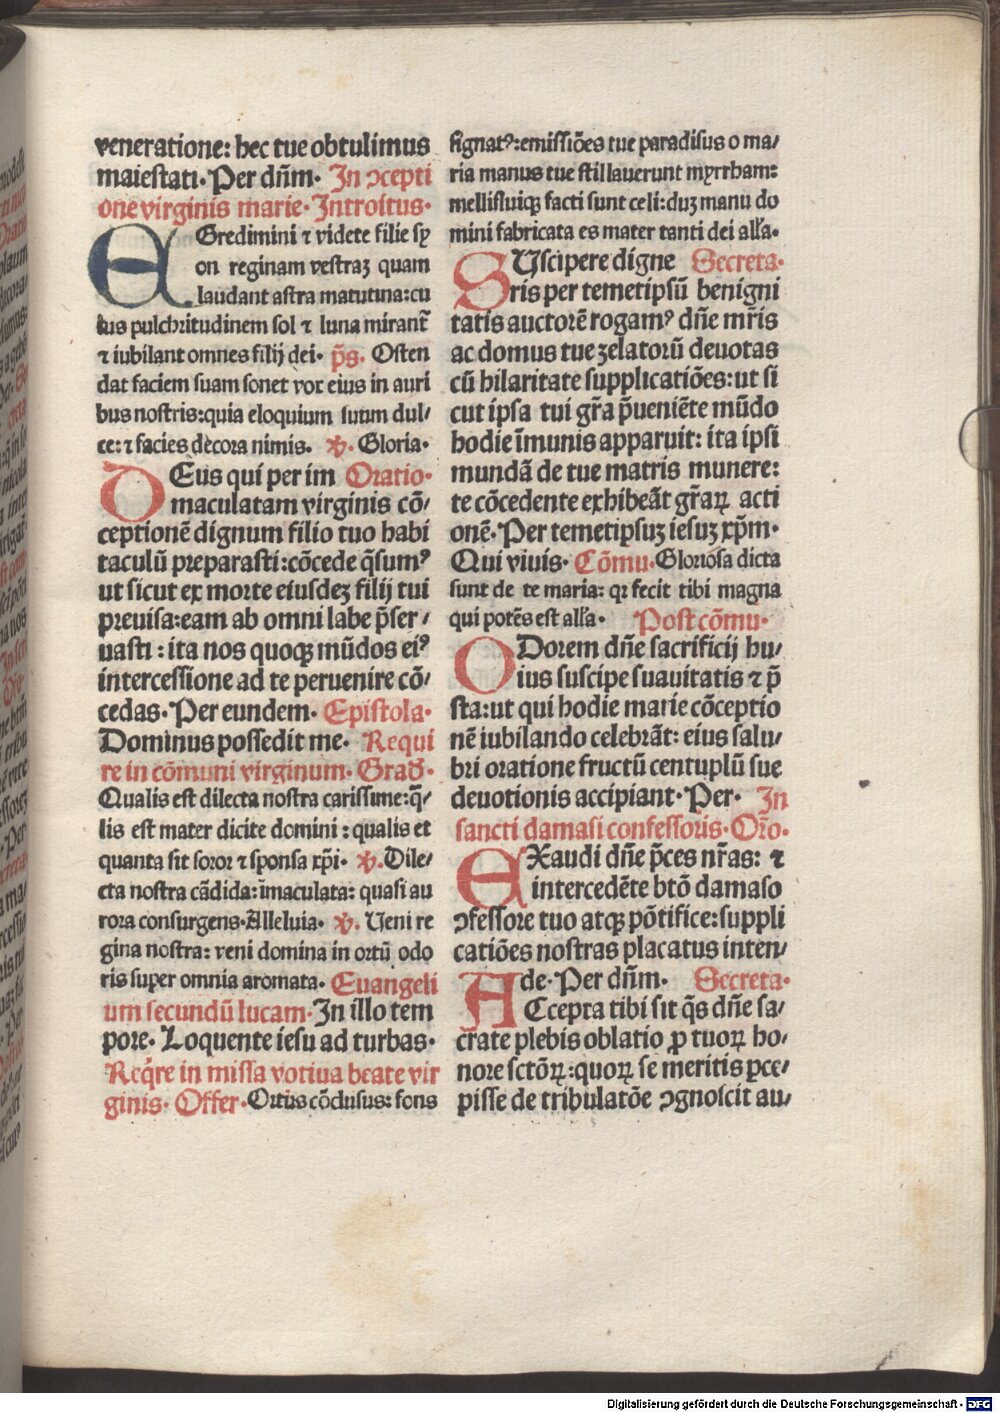 veneratione: hec tue obtulimus
maiestati. Per dn̄m. In ꝯcepti
one virginis marie. Introitus.
EGredimini ⁊ videte filie sy
on reginam vestraꝫ quam
laudant astra matutina: cu
ius pulchritudinem sol ⁊ luna mirant᷑
⁊ iubilant omnes filij dei. p̄s. Osten
dat faciem suam sonet vox eius in auri
bus nostris: quia eloquium suum dul/
ce: ⁊ facies decora nimis. ℣. Gloria.
DEus qui per im Oratio.
maculatam virginis cō/
ceptionē dignum filio tuo habi
taculū preparasti: cōcede q̄sumꝰ
ut sicut ex morte eiusdeꝫ filij tui
previsa: eam ab omni labe p̄ser/
uasti: ita nos quoqꝫ mūdos eiꝰ
intercessione ad te peruenire cō/
cedas. Per eundem. Epistola.
Dominus possedit me. Requi
re in cōmuni virginum. Grad̄.
Qualis est dilecta nostra carissime: q̄/
lis est mater dicite domini: qualis et
quanta sit soror ⁊ sponsa xp̄i. ℣. Dile/
cta nostra cādida: īmaculata: quasi au
rora consurgens. Alleluia. ℣. Ueni re
gina nostra: veni domina in ortū odo
ris super omnia aromata. Euangeli
um secundū lucam. In illo tem
pore. Loquente iesu ad turbas.
Req̄re in missa votiua beate vir
ginis. Offer. Ortus cōclusus: fons
signatꝰ: emissiōes tue paradisus o ma/
ria manus tue stillauerunt myrrham:
mellifluiqꝫ facti sunt celi: duꝫ manu do
mini fabricata es mater tanti dei all'a.
SUscipere digne Secreta.
ris per temetipsū benigni
tatis auctorē rogamꝰ dn̄e mr̄is
ac domus tue zelatorū deuotas
cū hilaritate supplicatiōes: ut si
cut ipsa tui gr̄a p̄ueniēte mūdo
hodie īmunis apparuit: ita ipsi
mundā de tue matris munere:
te cōcedente exhibeāt gr̄aꝝ acti
onē. Per temetipsuꝫ iesuꝫ xp̄m.
Qui viuis. Cōmu. Gloriosa dicta
sunt de te maria: qꝛ fecit tibi magna
qui potēs est all'a. Post cōmu.
ODorem dn̄e sacrificij hu/
ius suscipe suauitatis ⁊ p̄
sta: ut qui hodie marie cōceptio
nē iubilando celebrāt: eius salu/
bri oratione fructū centuplū sue
deuotionis accipiant. Per. In
sancti damasi confessoris. Or̄o.
EXaudi dn̄e p̄ces nr̄as: ⁊
intercedēte btō damaso
ꝯfessore tuo atqꝫ pōtifice: suppli
catiōes nostras placatus inten/
de. Per dn̄m. Secreta.
ACcepta tibi sit q̄s dn̄e sa/
crate plebis oblatio ꝓ tuoꝝ ho/
nore sctōꝝ: quoꝝ se meritis ꝑce/
pisse de tribulatōe ꝯgnoscit au/
Digitalisierung gefördert durch die Deutsche Forschungsgemeinschaft - DFG